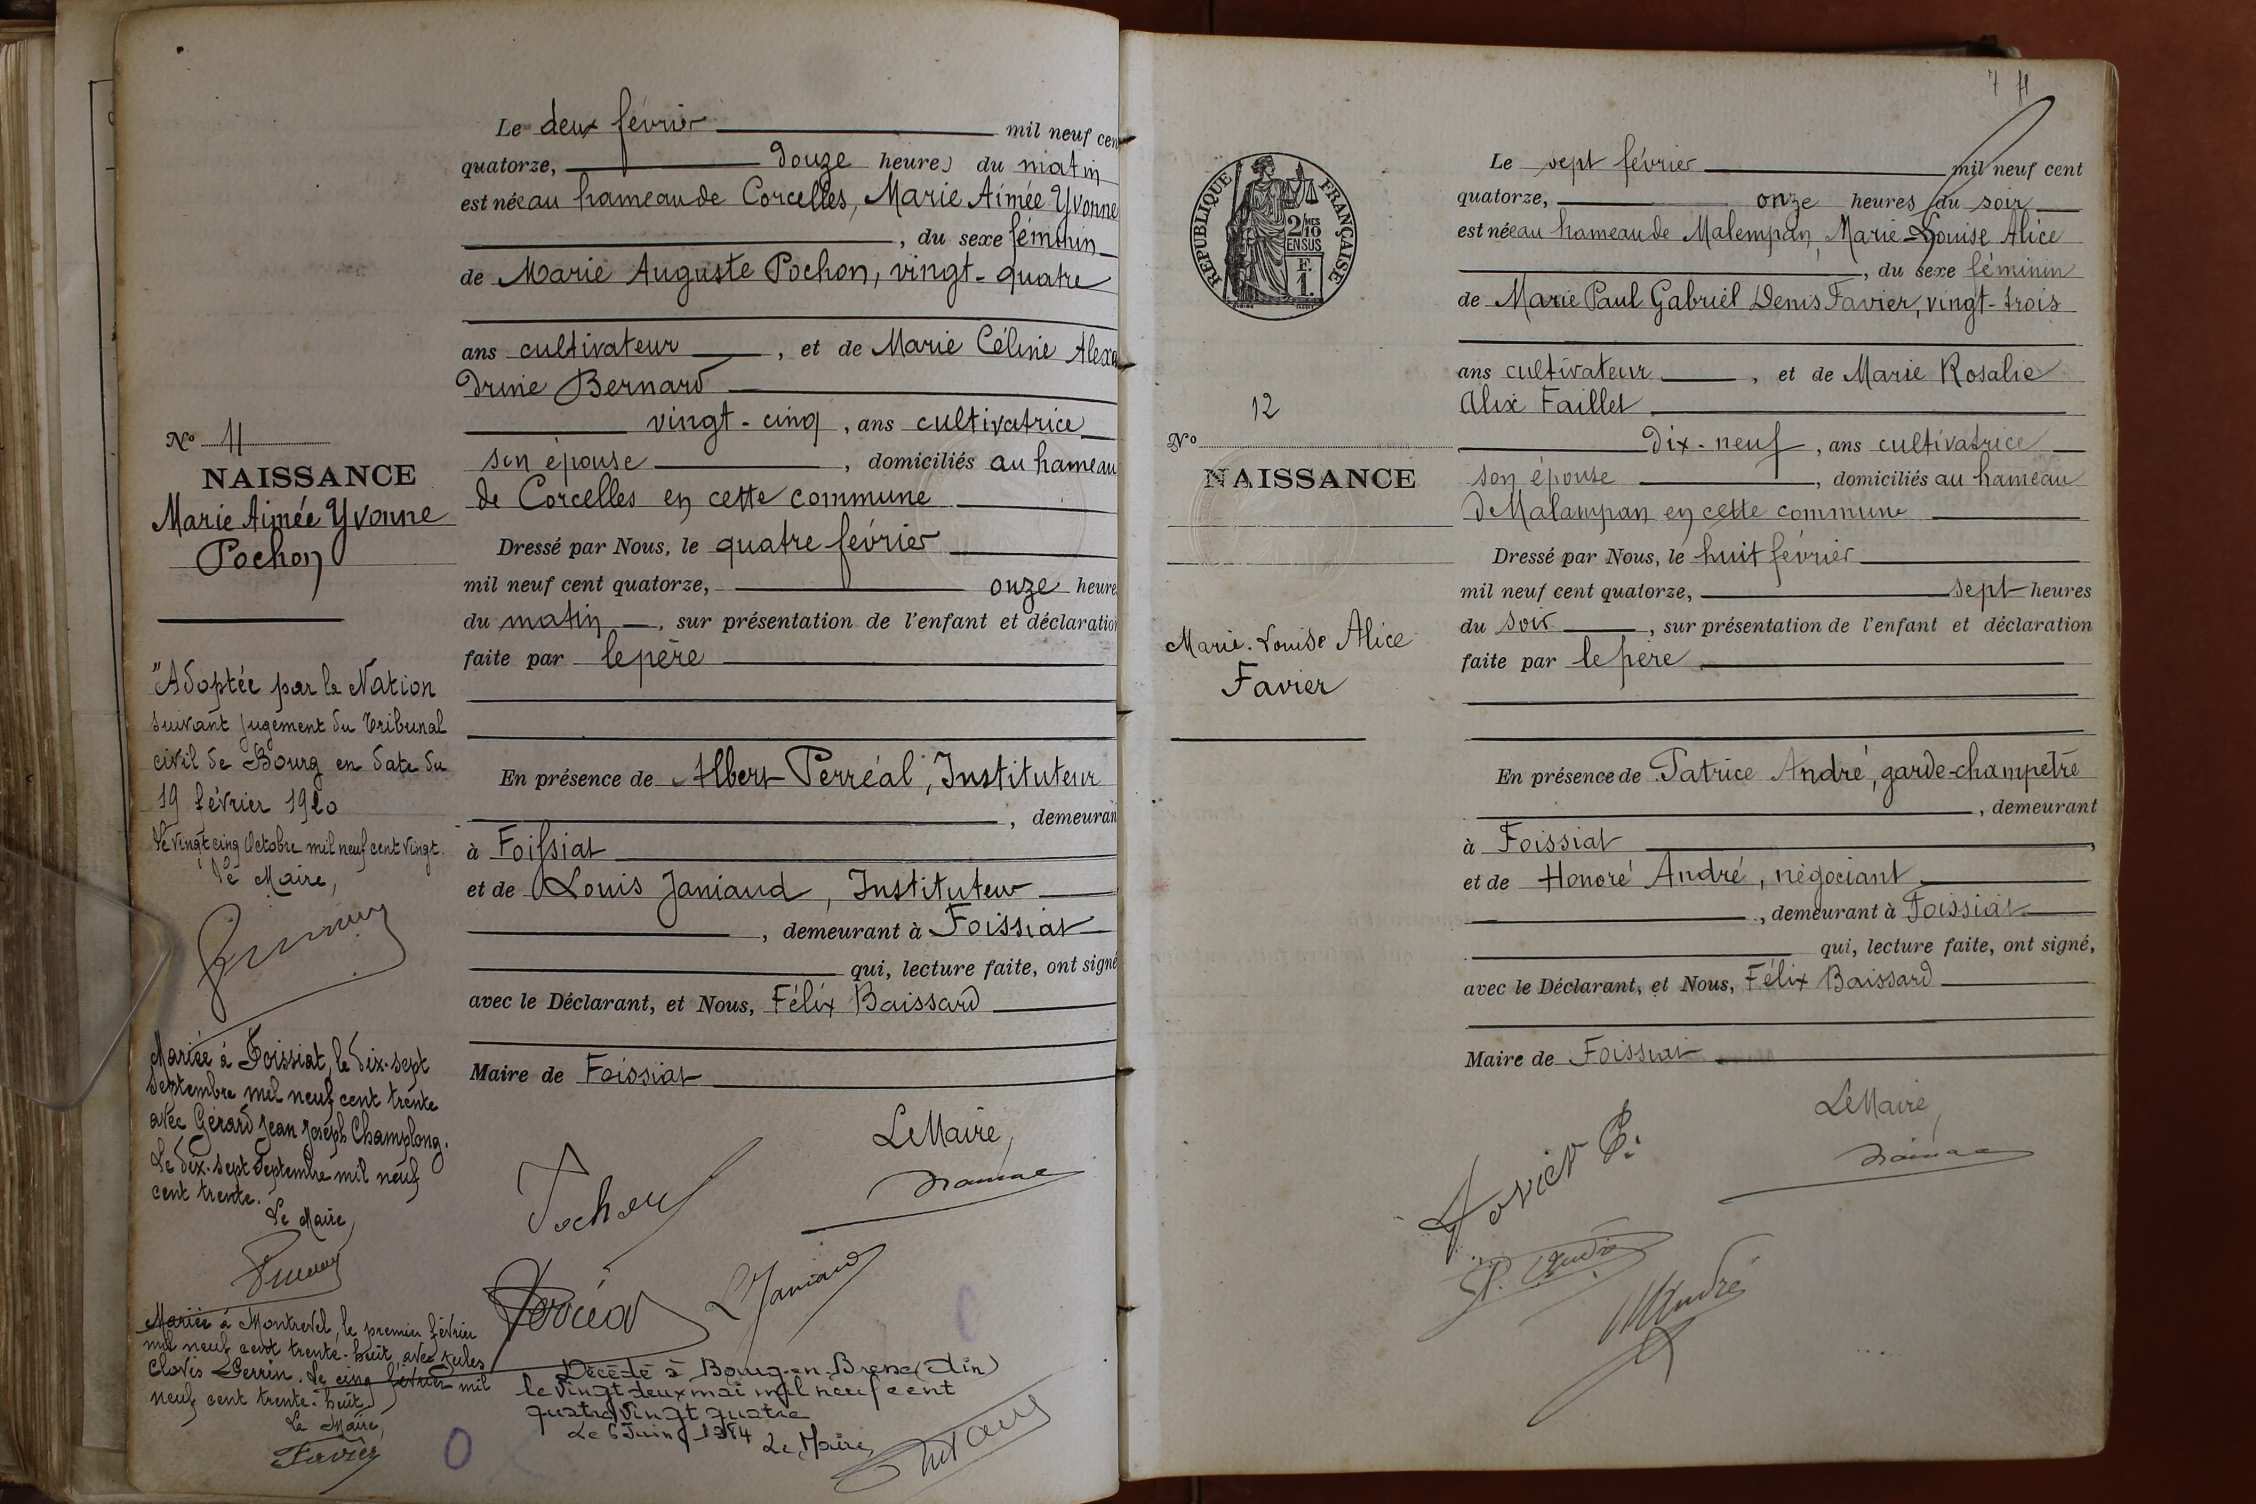 Le deux février mil neuf cen
quatorze, douze heures du matin
est née au hameau de Corcelles, Marie Aimée Yvonne
, du sexe féminin
de Marie Auguste Pochon, vingt-quatre
ans cultivateur , et de Marie Céline Alexa
drine Bernard
vingt-cinq , ans cultivatrice
son épouse , domiciliés au hameau
de Corcelles en cette commune
Dressé par Nous, le quatre février
mil neuf cent quatorze, onze heure
du matin , sur présentation de l'enfant et déclaration
faite par le père
En présence de Albert Perréal, Instituteur
, demeuran
à Foissiat
et de Louis Janiaud, Instituteur
, demeurant à Foissiat
qui, lecture faite, ont signé
avec le Déclarant, et Nous, Félix Baissard
Maire de Foissiat
Le Maire,
Pochon
Perréal
L Janiaud
Décédé à Bourg-en-Bresse (Ain)
le vingt deux mai mil neuf cent
quatre vingt quatre
Le 6 Juin 1984 Le Maire,
No 11
NAISSANCE
Marie Aimée Yvonne
Pochon
"Adoptée par la Nation
suivant jugement du Tribunal
civil de Bourg en date du
19 février 1920
Le vingt cinq Octobre mil neuf cent vingt.
Le Maire,
Mariée à Foissiat, le dix-sept
septembre mil neuf cent trente
avec Gérard Jean Joseph Champlong.
Le dix-sept Septembre mil neuf
cent trente.
Le Maire,
Mariée à Montrevel, le premier février
mil neuf cent trente-huit avec Jules
Clovis Perrin. Le cinq février mil
neuf cent trente-huit
Le Maire,
Favier
RÉPUBLIQUE FRANÇAISE
2/10
EN SUS
F.
1.
12
No
NAISSANCE
Marie-Louise Alice
Favier
Le sept février mil neuf cent
quatorze, onze heures du soir
est née au hameau de Malempan, Marie-Louise Alice
, du sexe féminin
de Marie Paul Gabriel Denis Favier, vingt-trois
ans cultivateur , et de Marie Rosalie
Alix Faillet
dix-neuf , ans cultivatrice
son épouse , domiciliés au hameau
de Malampan en cette commune
Dressé par Nous, le huit février
mil neuf cent quatorze, sept heures
du soir , sur présentation de l'enfant et déclaration
faite par le père
En présence de Patrice André, garde-champetre
, demeurant
à Foissiat
et de Honoré André, négociant
, demeurant à Foissiat
qui, lecture faite, ont signé,
avec le Déclarant, et Nous, Félix Baissard
Maire de Foissiat
Le Maire,
Favier P.
P. André
H André